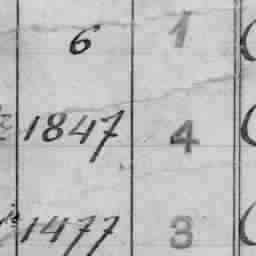 6 1
1847 4
1477 3